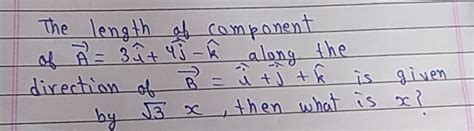 The length of component
of A⃗ = 3û + 4ĵ - k̂ along the
direction of B⃗ = û + ĵ + k̂ is given
by √3 x, then what is x?